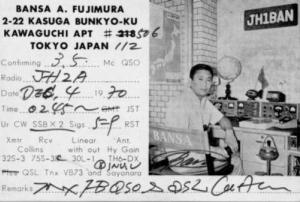 BANSA A. FUJIMURA
2-22 KASUGA BUNKYO-KU
KAWAGUCHI APT # 218 506
TOKYO JAPAN 112
Confirming 3.5 Mc QSO
Radio JH2A
Date DEC, 4 1970
Time 0245~ GMT JST
Ur CW SSB×2 Sigs 5-9 RST
Xmtr Rcv Linear Ant.
Collins with out Hy Gain
32S-3 75S-3 30L-1 TH6-DX
QSL Tnx VB73 and Sayonara
Remarks
JH1BAN
BANSA